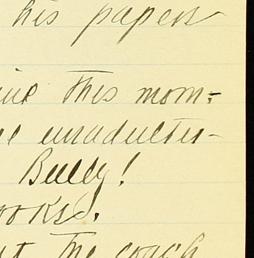 his papers
this mom-
unadulter-
Bully!
ooks.
the coach